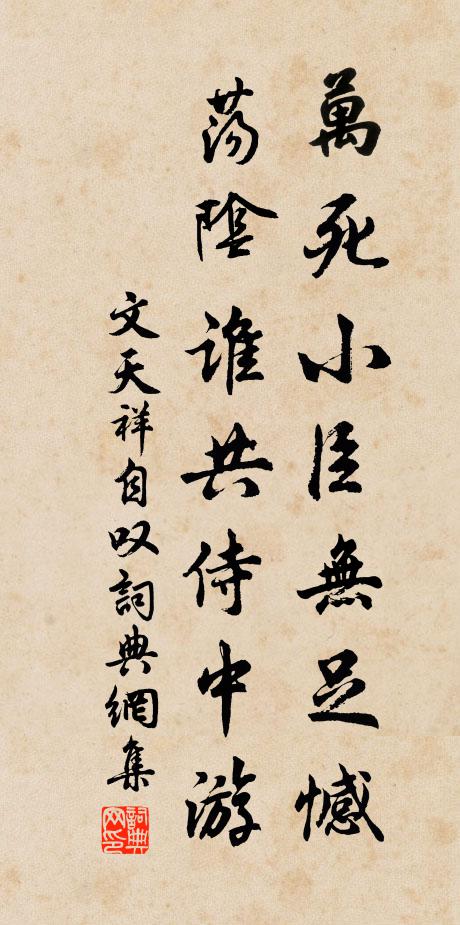 萬死小臣無足憾
荡陰誰共侍中游
文天祥自叹詞典網集
詞典网印